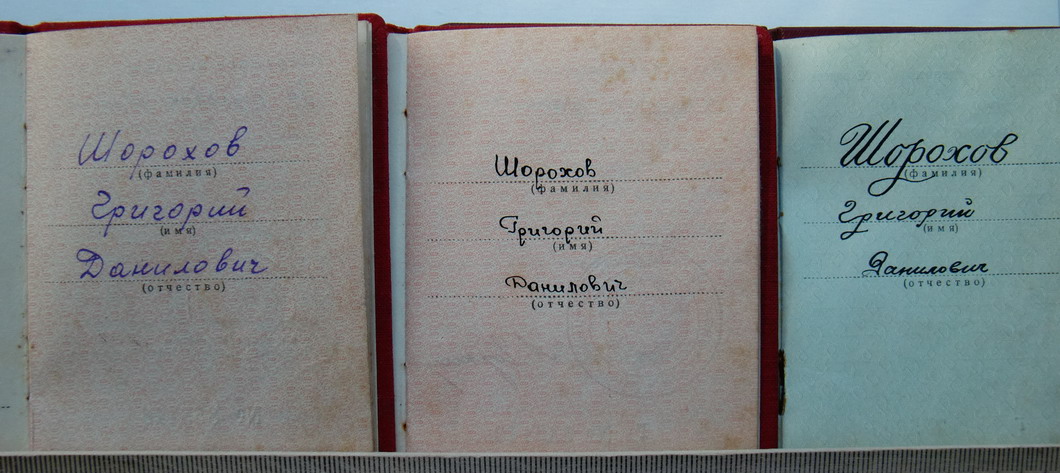 Шорохов
(фамилия)
Григорий
(имя)
Данилович
(отчество)
Шорохов
(фамилия)
Григорий
(имя)
Данилович
(отчество)
Шорохов
(фамилия)
Григорий
(имя)
Данилович
(отчество)